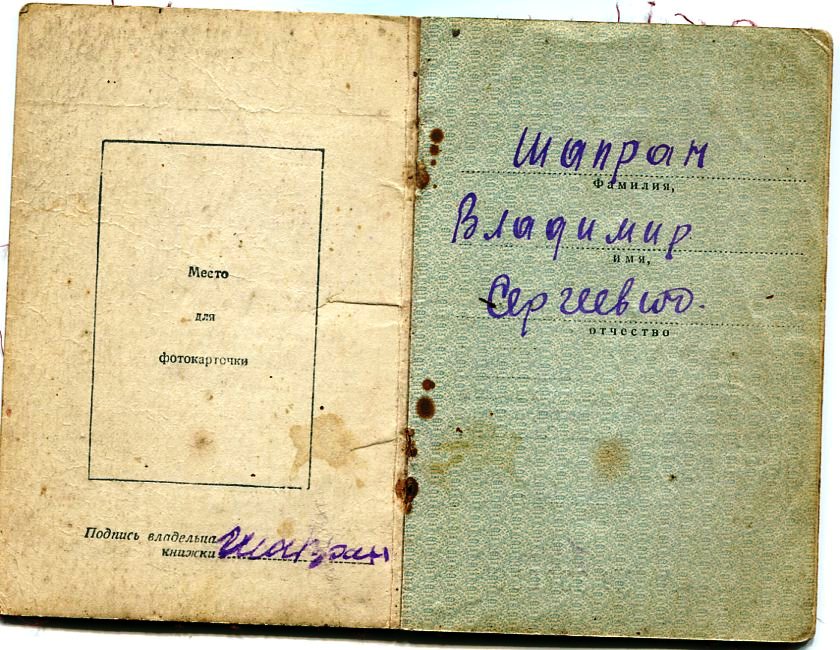 Место
для
фотокарточки
Подпись владельца
книжки Шапран
Шапран
Фамилия,
Владимир
имя,
Сергеевич.
отчество